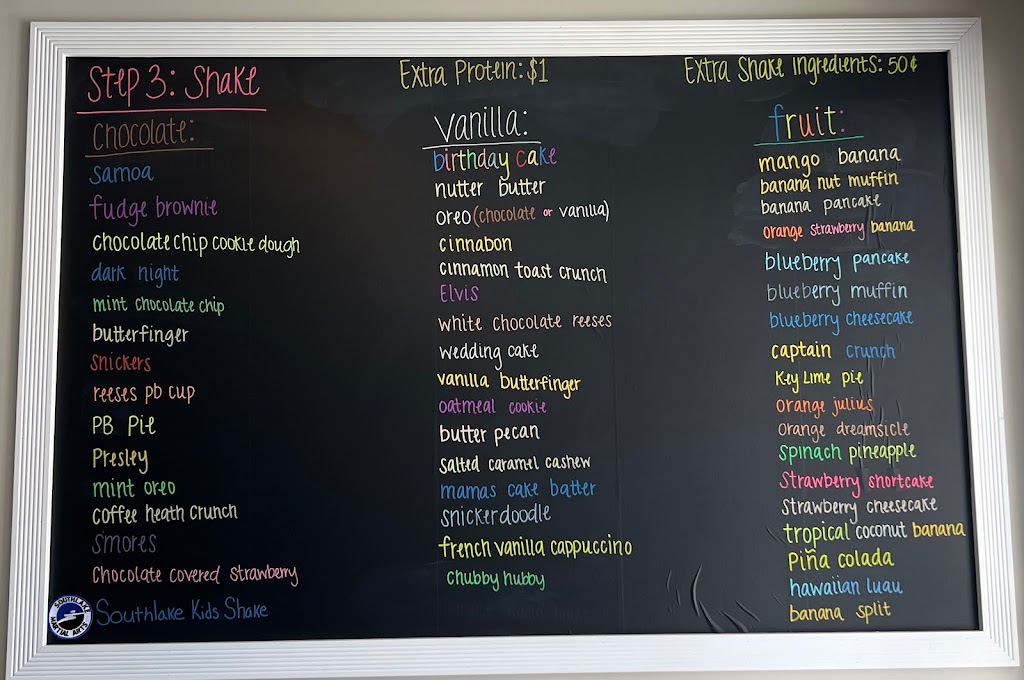 Step 3: Shake
Extra Protein: $1
Extra Shake Ingredients: 50¢
chocolate:
samoa
fudge brownie
chocolate chip cookie dough
dark night
mint chocolate chip
butterfinger
snickers
reeses pb cup
PB Pie
Presley
mint oreo
coffee heath crunch
smores
chocolate covered strawberry
SOUTHLAKE
MARTIAL ARTS
Southlake Kids Shake
vanilla:
birthday cake
nutter butter
oreo (chocolate or vanilla)
cinnabon
cinnamon toast crunch
Elvis
white chocolate reeses
wedding cake
vanilla butterfinger
oatmeal cookie
butter pecan
salted caramel cashew
mamas cake batter
snickerdoodle
french vanilla cappuccino
chubby hubby
fruit:
mango banana
banana nut muffin
banana pancake
orange strawberry banana
blueberry pancake
blueberry muffin
blueberry cheesecake
captain crunch
Key Lime pie
orange julius
orange dreamsicle
spinach pineapple
Strawberry shortcake
Strawberry cheesecake
tropical coconut banana
Piña colada
hawaiian luau
banana split